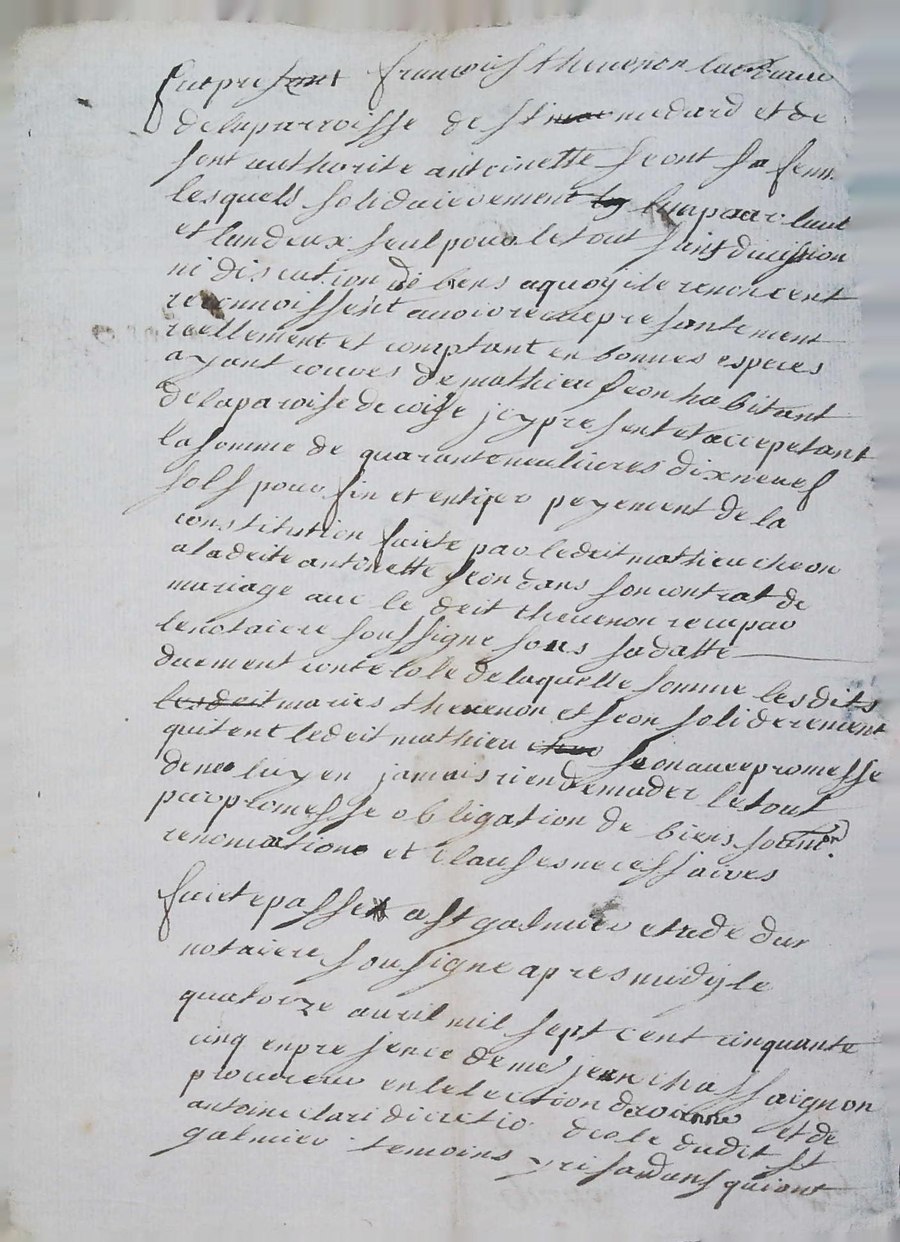 fut present françois thevenon laboureur
de laparroisse de st medard et de
sont authorite antoinette seont sa fem.
lesquels solidairement lun pour laut
et lun deux seul pour letout sans division
ni discution de biens aquoy ils renoncent
reconnoissent avoir recu presantement
reellement et comptant en bonnes especes
ayant couvers de mathieu seon habitant
de laparoise de coise jcy present et accepetant
la somme de quarante neuf livres dixneuf
sols pour fin et entiger peyement de la
constitution faite par ledeit mathieu cheon
a ladeite antoinette seon dans son contrat de
mariage avec le deit thevenon recu par
le notaiere soussigne sous sa datte
duement contelole de laquelle somme lesdits
lesdeit maries thevenon et seon soliderement
quitent ledeit mathieu seon avec promesse
de ne luy en jamais rien demader le tout
par promesse obligation de biens soumon
renonciations et clauses necessaires
fait et passe a st galmier etude dur
notaiere sousigne apres midy le
quatorze avril mil sept cent cinquante
cinq en presence de me jean chassaignon
procureur en lelection de roanne et de
antoine clari dudit st
galmier temoins qui ont